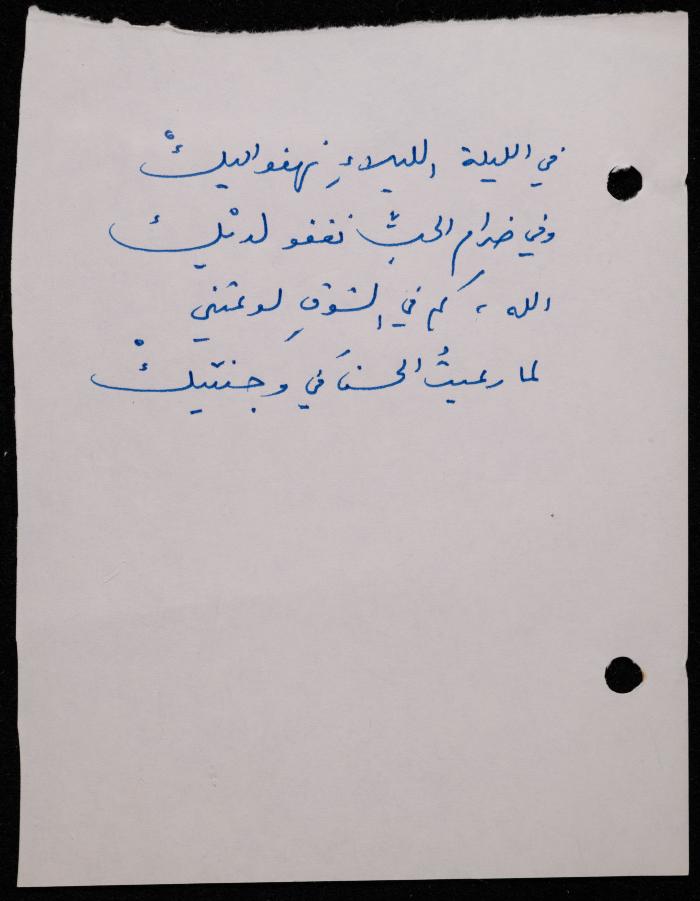 في الليلة الليلاءِ نهفو اليكْ
وفي ضرام الحبِّ نغفو لديْك
الله ، كم في الشوقِ لوعتني
لما رميتُ الحسنَ في وجنتيكْ